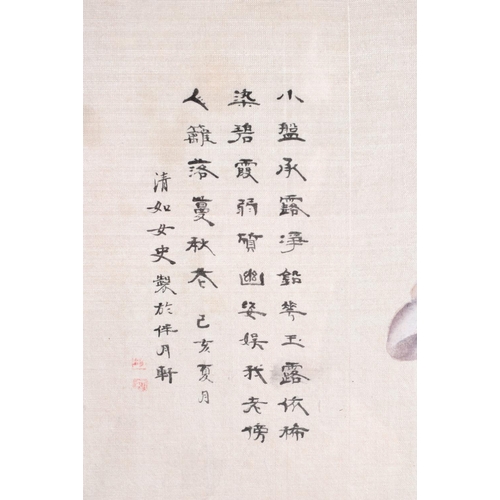 小盤承露淨鉛華玉露依稀
染碧霞弱質幽姿娱我老傍
人籬落蔓秋花 己亥夏月
清如女史製於伴月軒